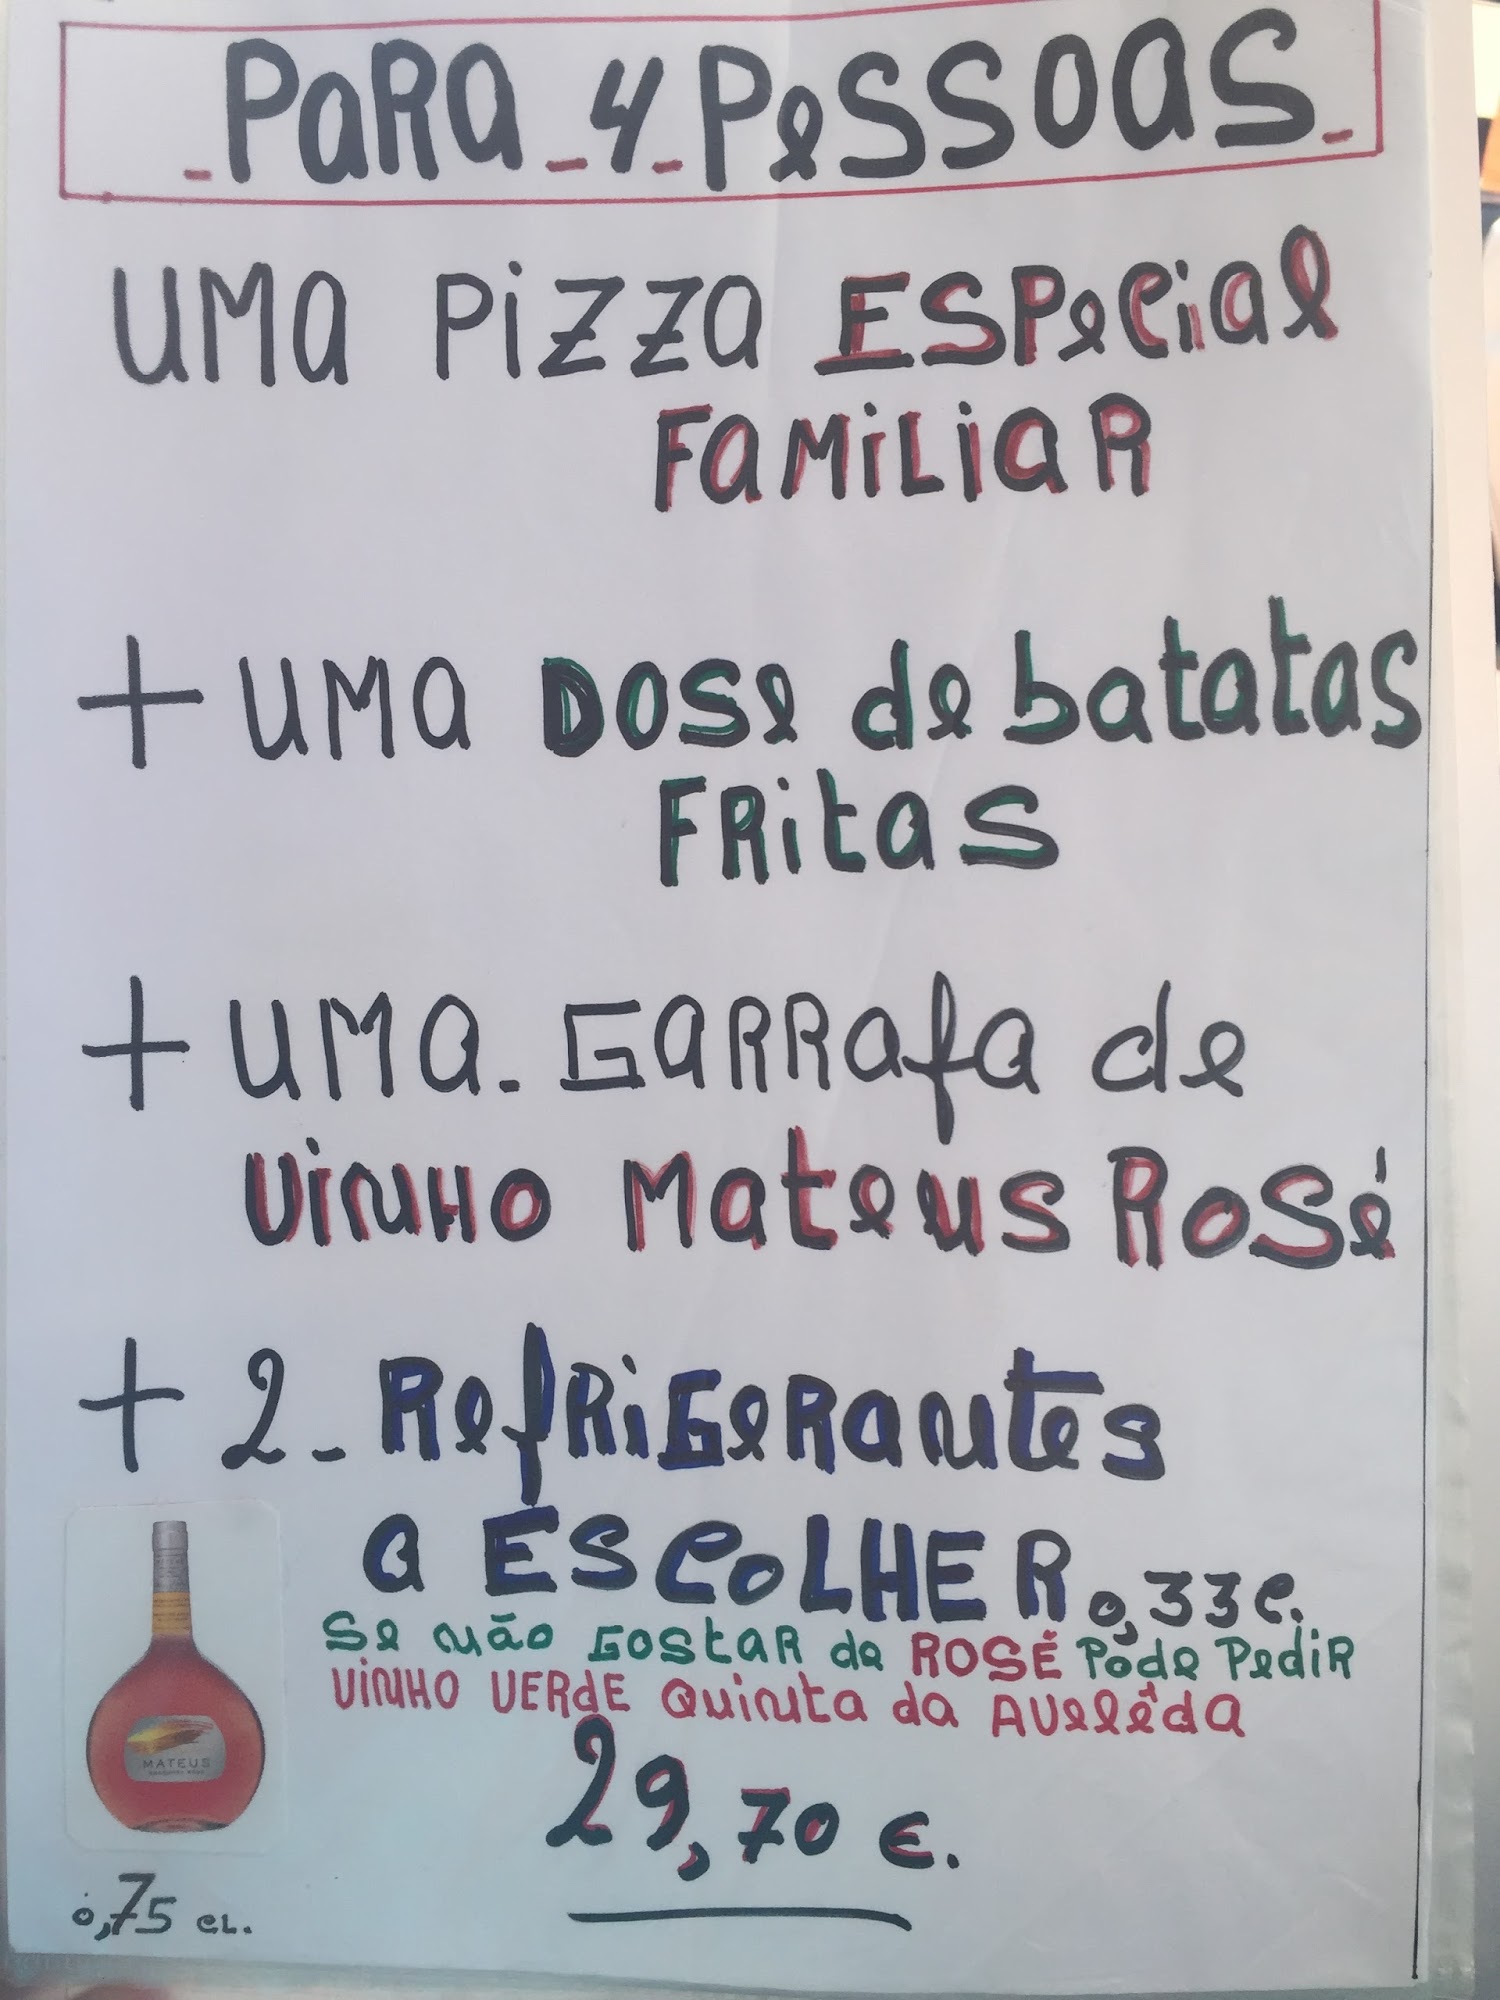 PARA 4 PESSOAS
UMA PIZZA ESPECIAL
FAMILIAR
+ UMA DOSE de batatas
FRitas
+ UMA. GARRAfa de
VINHO Mateus Rosé
+ 2 - RefRiGeRantes
a ESCOLHER 0,33 c.
Se não GOStAR de ROSÉ Pode Pedir
VINHO VERdE Quinta da Avelêda
29,70 €.
MATEUS
0,75 CL.